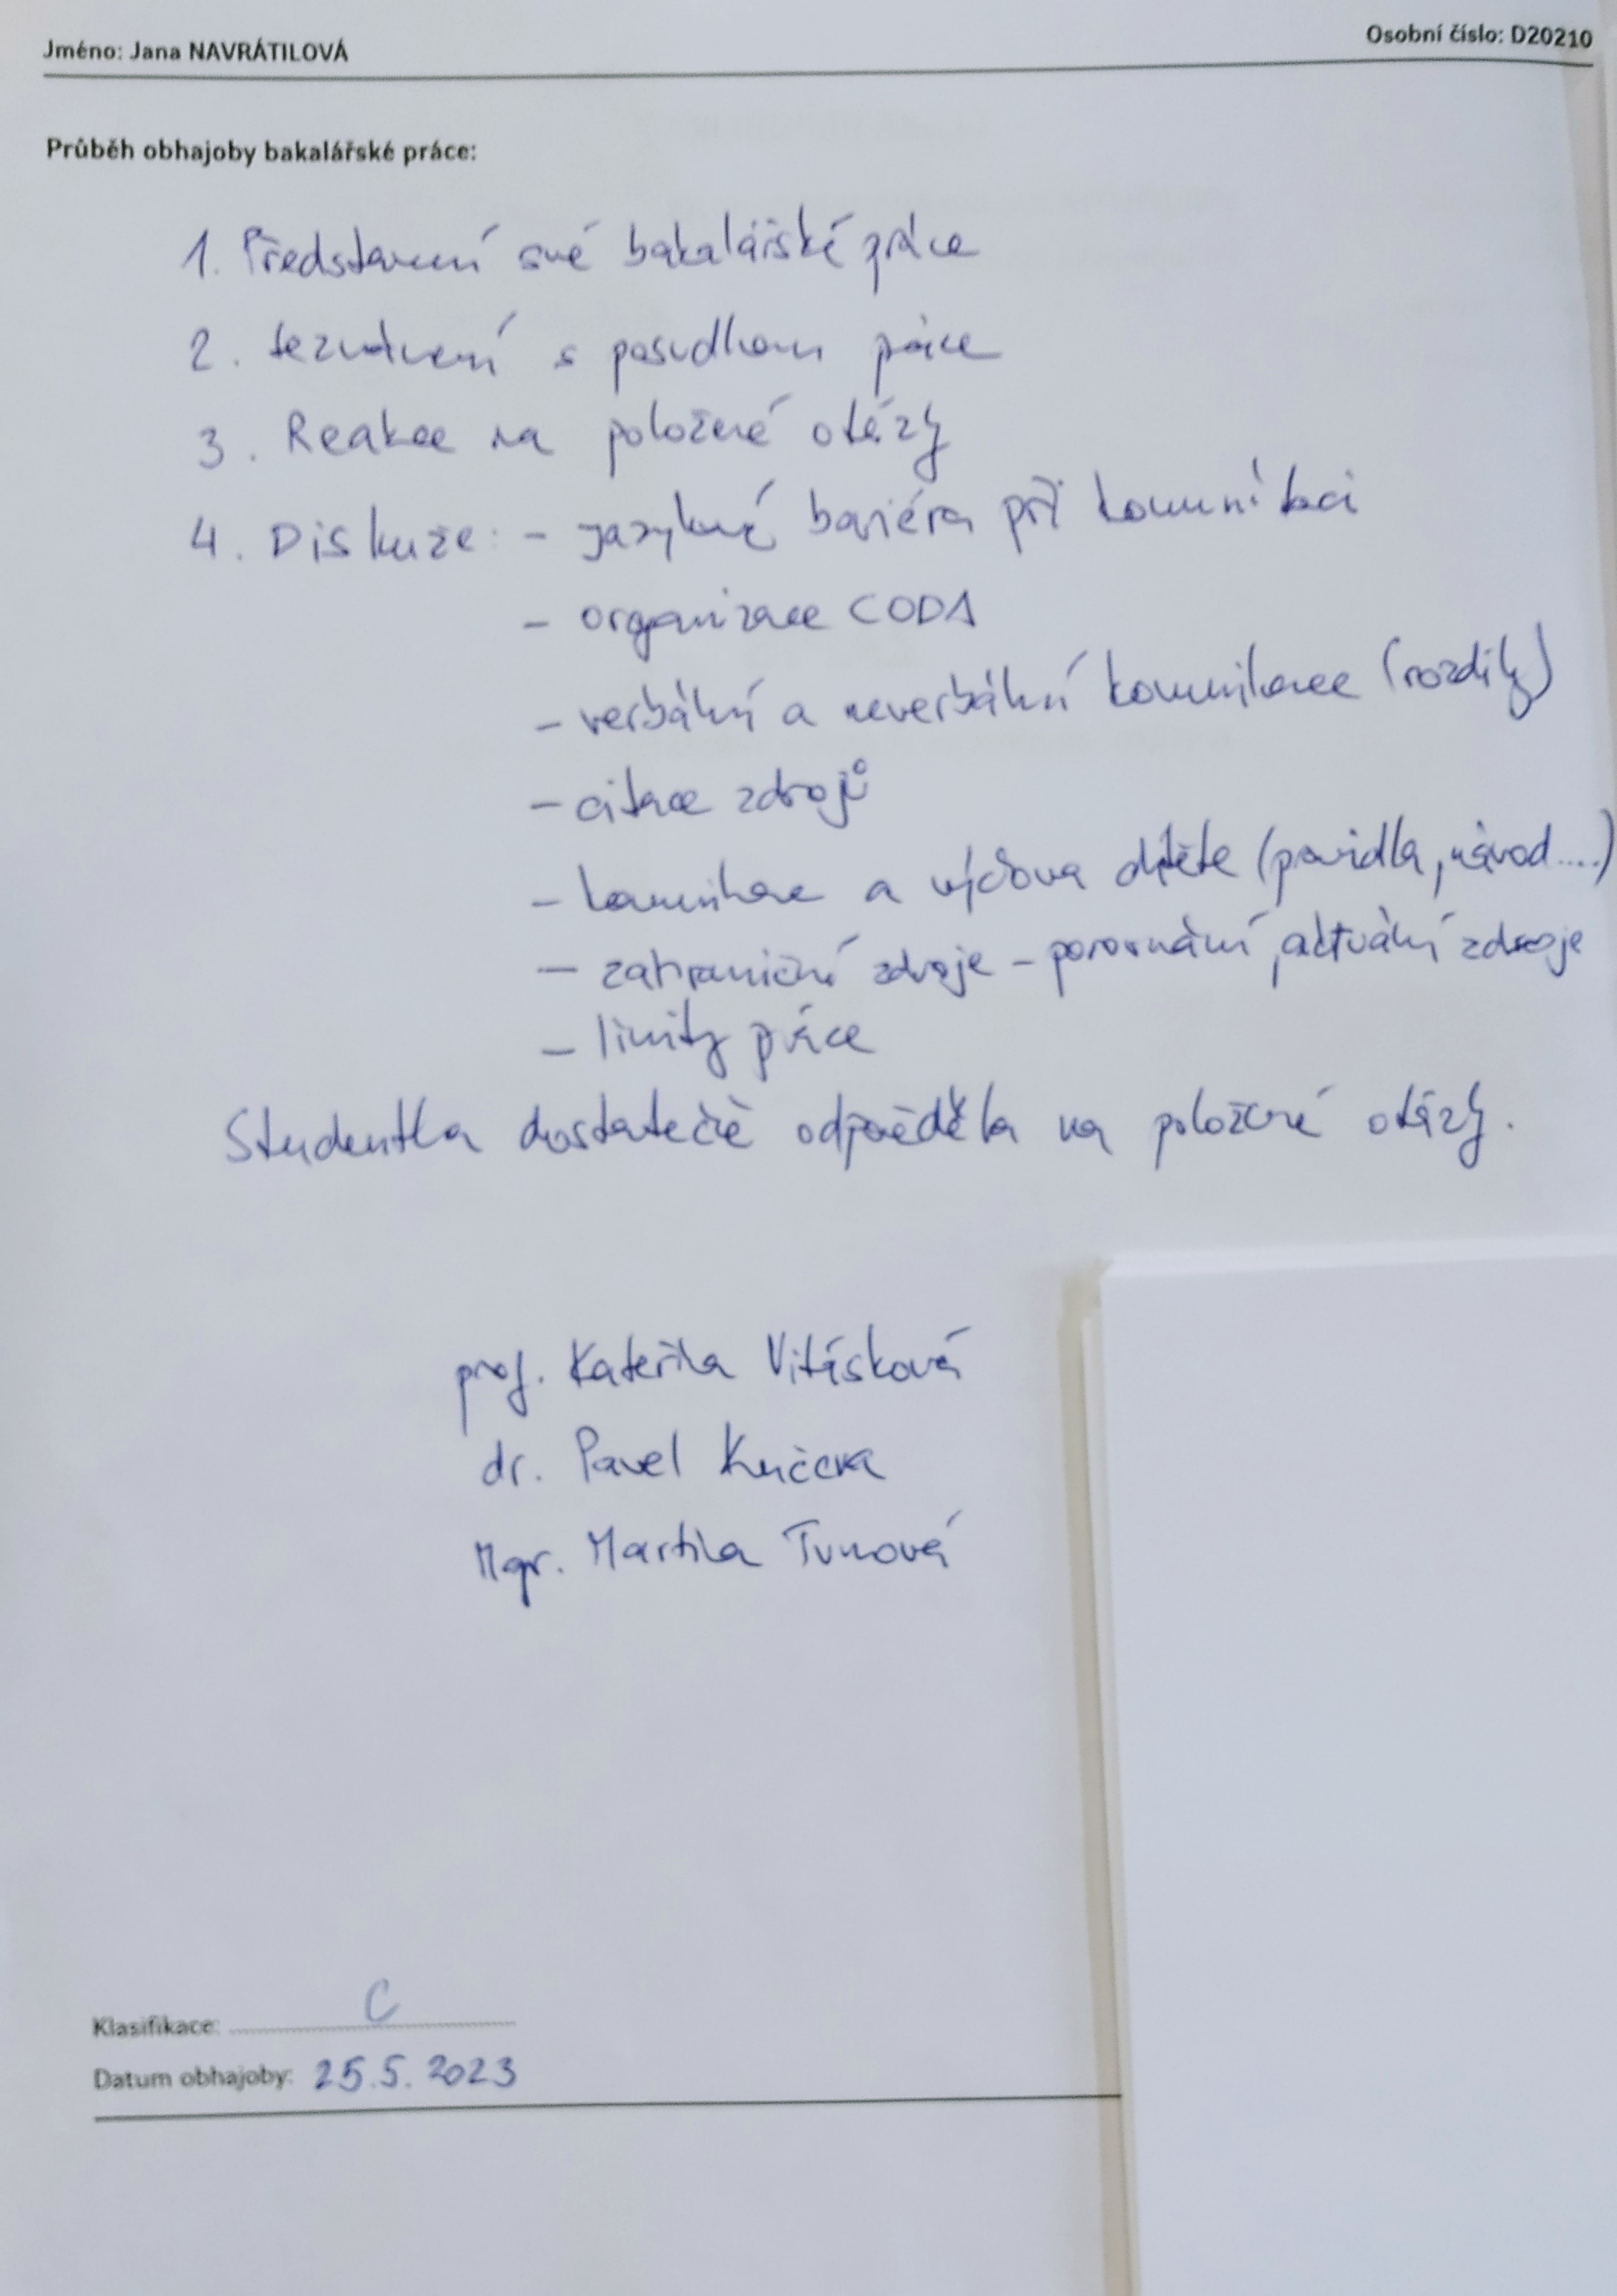 Jméno: Jana NAVRÁTILOVÁ
Osobní číslo: D20210
Průběh obhajoby bakalářské práce:
1. Představení své bakalářské práce
2. Seznámení s posudkem práce
3. Reakce na položené otázky
4. Diskuze: - jazyková bariéra při komunikaci
- organizace CODA
- verbální a neverbální komunikace (rozdíly)
- citace zdrojů
- komunikace a výchova dítěte (pravidla, návod....)
- zahraniční zdroje - porovnání, aktuální zdroje
- limity práce
Studentka dostatečně odpověděla na položené otázky.
prof. Kateřina Vitásková
dr. Pavel Kučera
Mgr. Martina
Klasifikace: C
Datum obhajoby: 25.5.2023